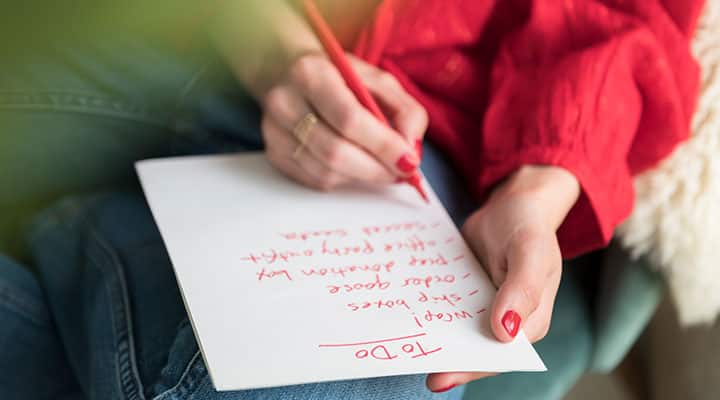 To Do
- wrap!
- ship boxes
- order goose
- prep donation box
- office party outfit
- secret santa